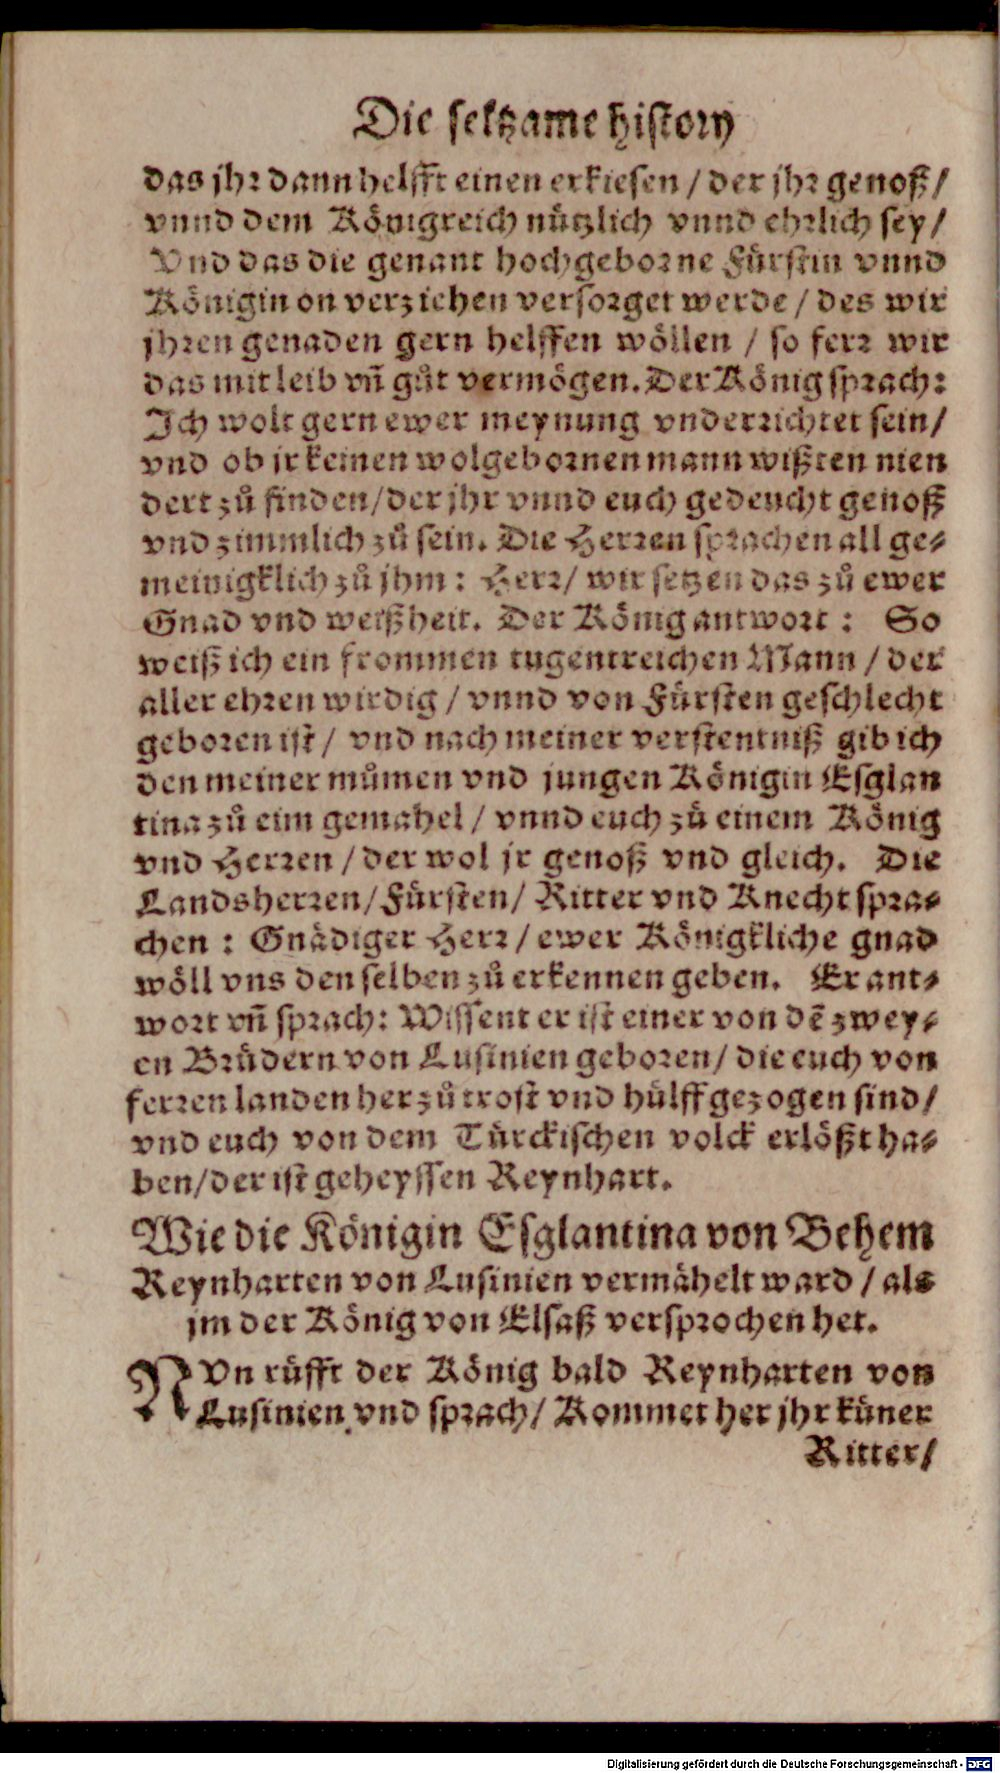 Die seltzame history
das jhr dann helfft einen erkiesen / der jhr genoß /
vnnd dem Königreich nützlich vnnd ehrlich sey /
Vnd das die genant hochgeborne Fürstin vnnd
Königin on verziehen versorget werde / des wir
jhren genaden gern helffen wöllen / so ferr wir
das mit leib vñ gůt vermögen. Der König sprach:
Ich wolt gern ewer meynung vnderrichtet sein /
vnd ob jr keinen wolgebornen mann wißten nien
dert zů finden / der jhr vnnd euch gedeucht genoß
vnd zimmlich zů sein. Die Herren sprachen all ge-
meinigklich zů jhm : Herr / wir setzen das zů ewer
Gnad vnd weißheit. Der König antwort : So
weiß ich ein frommen tugentreichen Mann / der
aller ehren wirdig / vnnd von Fürsten geschlecht
geboren ist / vnd nach meiner verstentniß gib ich
den meiner můmen vnd jungen Königin Esglan
tina zů eim gemahel / vnnd euch zů einem König
vnd Herren / der wol jr genoß vnd gleich. Die
Landsherren / Fürsten / Ritter vnd Knecht spra-
chen : Gnädiger Herr / ewer Königkliche gnad
wöll vns den selben zů erkennen geben. Er ant-
wort vñ sprach: Wissent er ist einer von dẽ zwey-
en Brüdern von Lusinien geboren / die euch von
ferren landen her zů trost vnd hülff gezogen sind /
vnd euch von dem Türckischen volck erlößt ha-
ben / der ist geheyssen Reynhart.
Wie die Königin Esglantina von Behem
Reynharten von Lusinien vermähelt ward / als
jm der König von Elsaß versprochen het.
NVn rüfft der König bald Reynharten von
Lusinien vnd sprach / Kommet her jhr küner
Ritter /
Digitalisierung gefördert durch die Deutsche Forschungsgemeinschaft - DFG